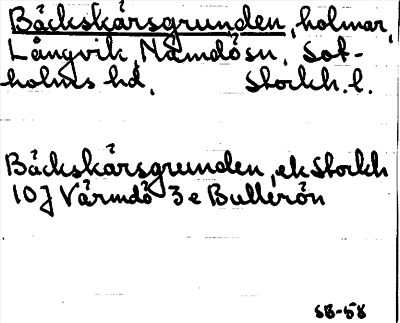 Bäckskärsgrunden, holmar,
Långvik, Nämdö sn, Sot-
holms hd, Stockh. l.
Bäckskärsgrunden, ek Stockh
10J Värmdö 3e Bullerön
SB-58